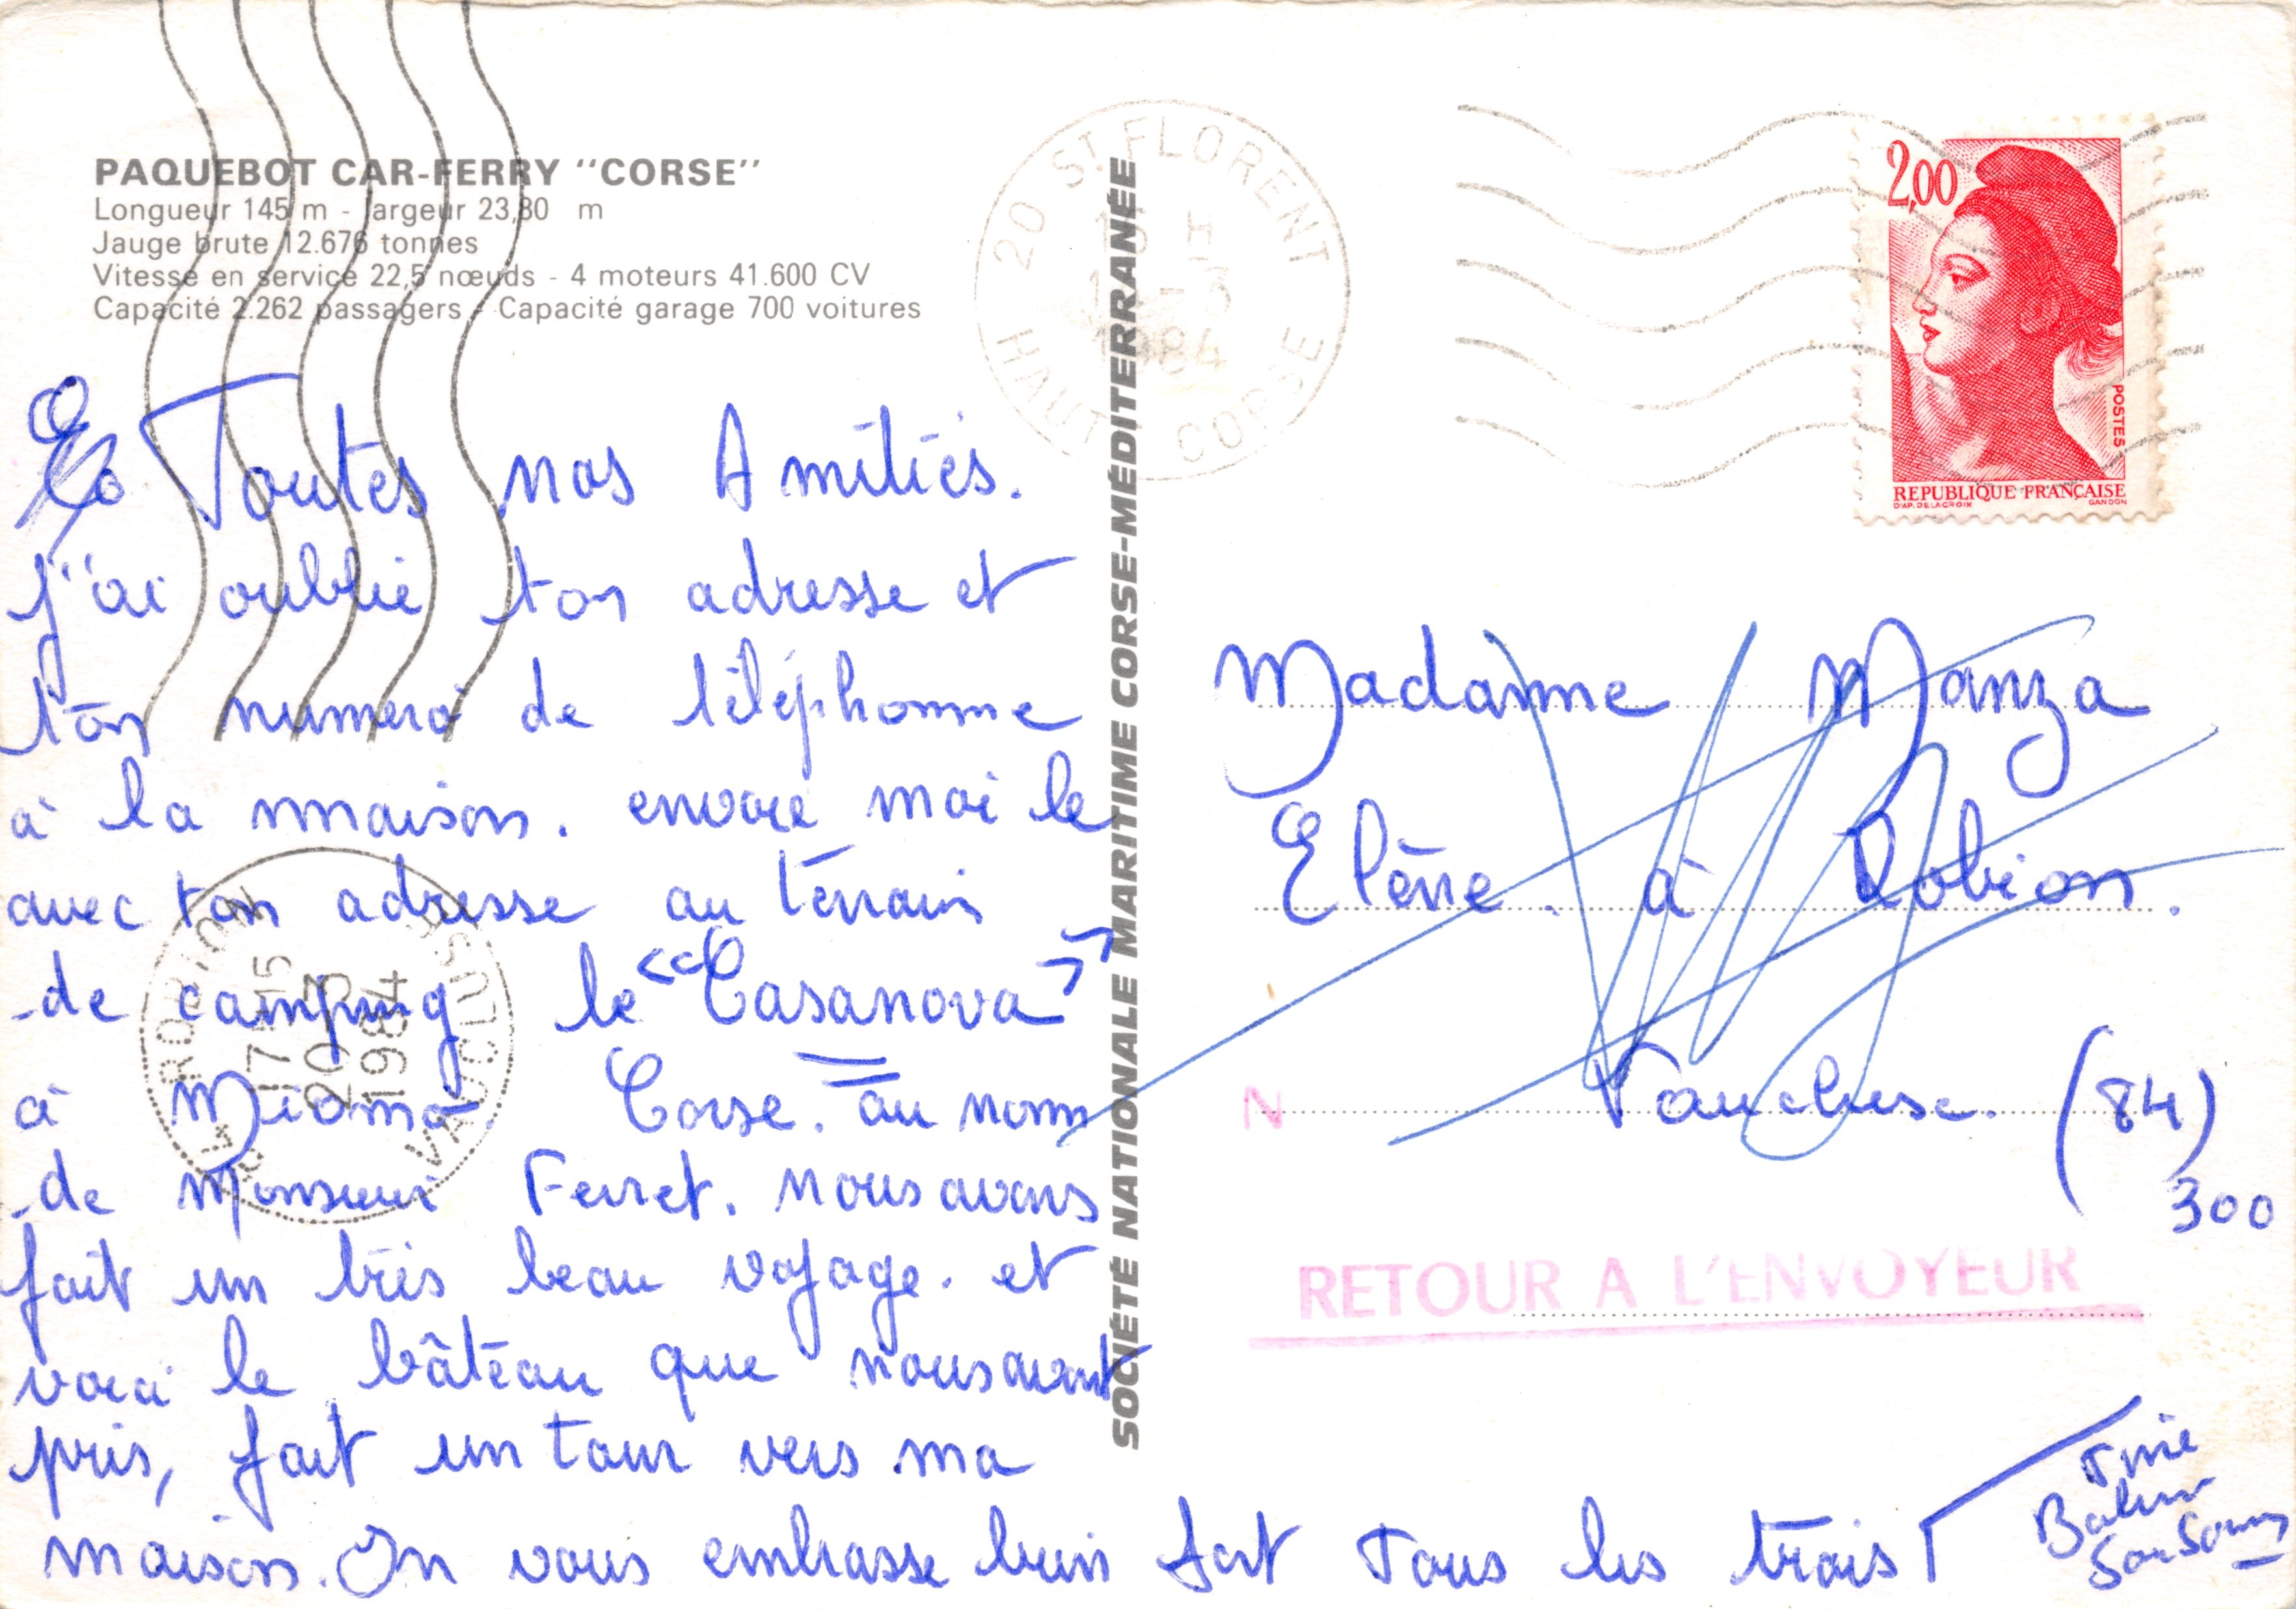 PAQUEBOT CAR-FERRY "CORSE"
Longueur 145 m - largeur 23,80 m
Jauge brute 12.676 tonnes
Vitesse en service 22,5 nœuds - 4 moteurs 41.600 CV
Capacité 2.262 passagers - Capacité garage 700 voitures
Toutes nos Amitiés.
j'ai oublié ton adresse et
ton numéro de téléphonne
à la maison. envoie moi le
avec ton adresse au terrain
de camping le "Casanova"
à Miomo Corse. au nom
de Monsieur Ferret. nous avons
fait un très beau voyage. et
voici le bâteau que nous avont
pris, fait un tour vers ma
maison. On vous embrasse bien fort Tous les trois
SOCIÉTÉ NATIONALE MARITIME CORSE-MÉDITERRANÉE
20 ST FLORENT
H
-3
1984
HAUTE CORSE
2,00
POSTES
REPUBLIQUE FRANÇAISE
D'AP. DELACROIX
GANDON
Madame Manza
Elène. à Robion.
Vaucluse. (84)
300
N
RETOUR A L'ENVOYEUR
84 ROBION
17-15
20-3
1984
VAUCLUSE